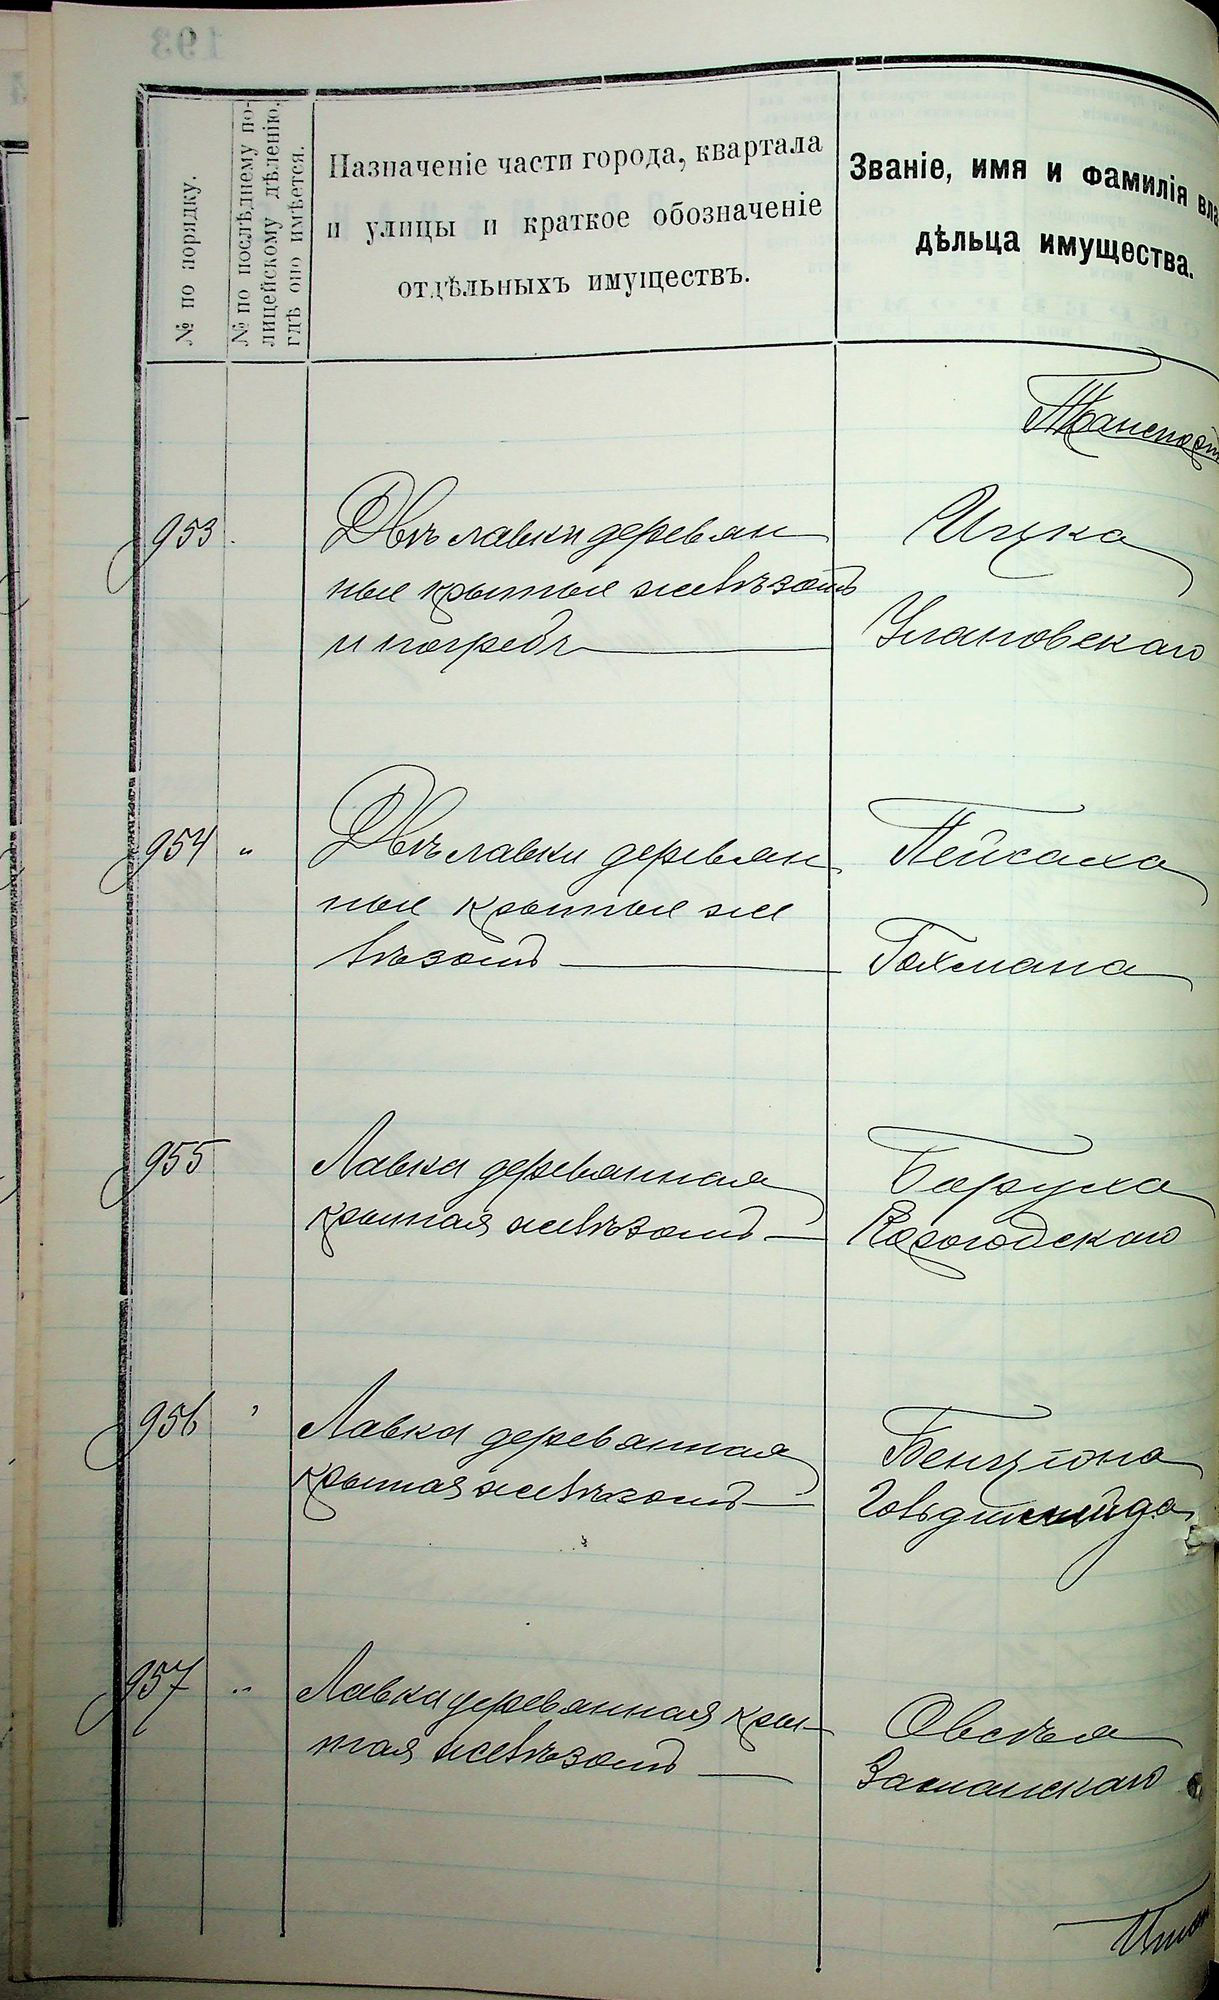 № по порядку.
№ по послѣднему по-
лицейскому дѣленію,
гдѣ оно имѣется.
Назначеніе части города, квартала
и улицы и краткое обозначеніе
отдѣльныхъ имуществъ.
Званіе, имя и фамилія вла
дѣльца имущества.
Транспорт
953
Двѣ лавки деревян
ныя крытыя желѣзомъ
и погребъ
Ицка
Улановскаго
954 "
Двѣ лавки деревян
ныя крытыя же
лѣзомъ
Пейсаха
Гохмана
955
Лавка деревянная
крытая желѣзомъ
Боруха
Рогодскаго
956 "
Лавка деревянная
крытая желѣзомъ
Бенціона
Гольдшмида
957 "
Лавка деревянная кры-
тая желѣзомъ
Овсѣя
Заславскаго
Итого